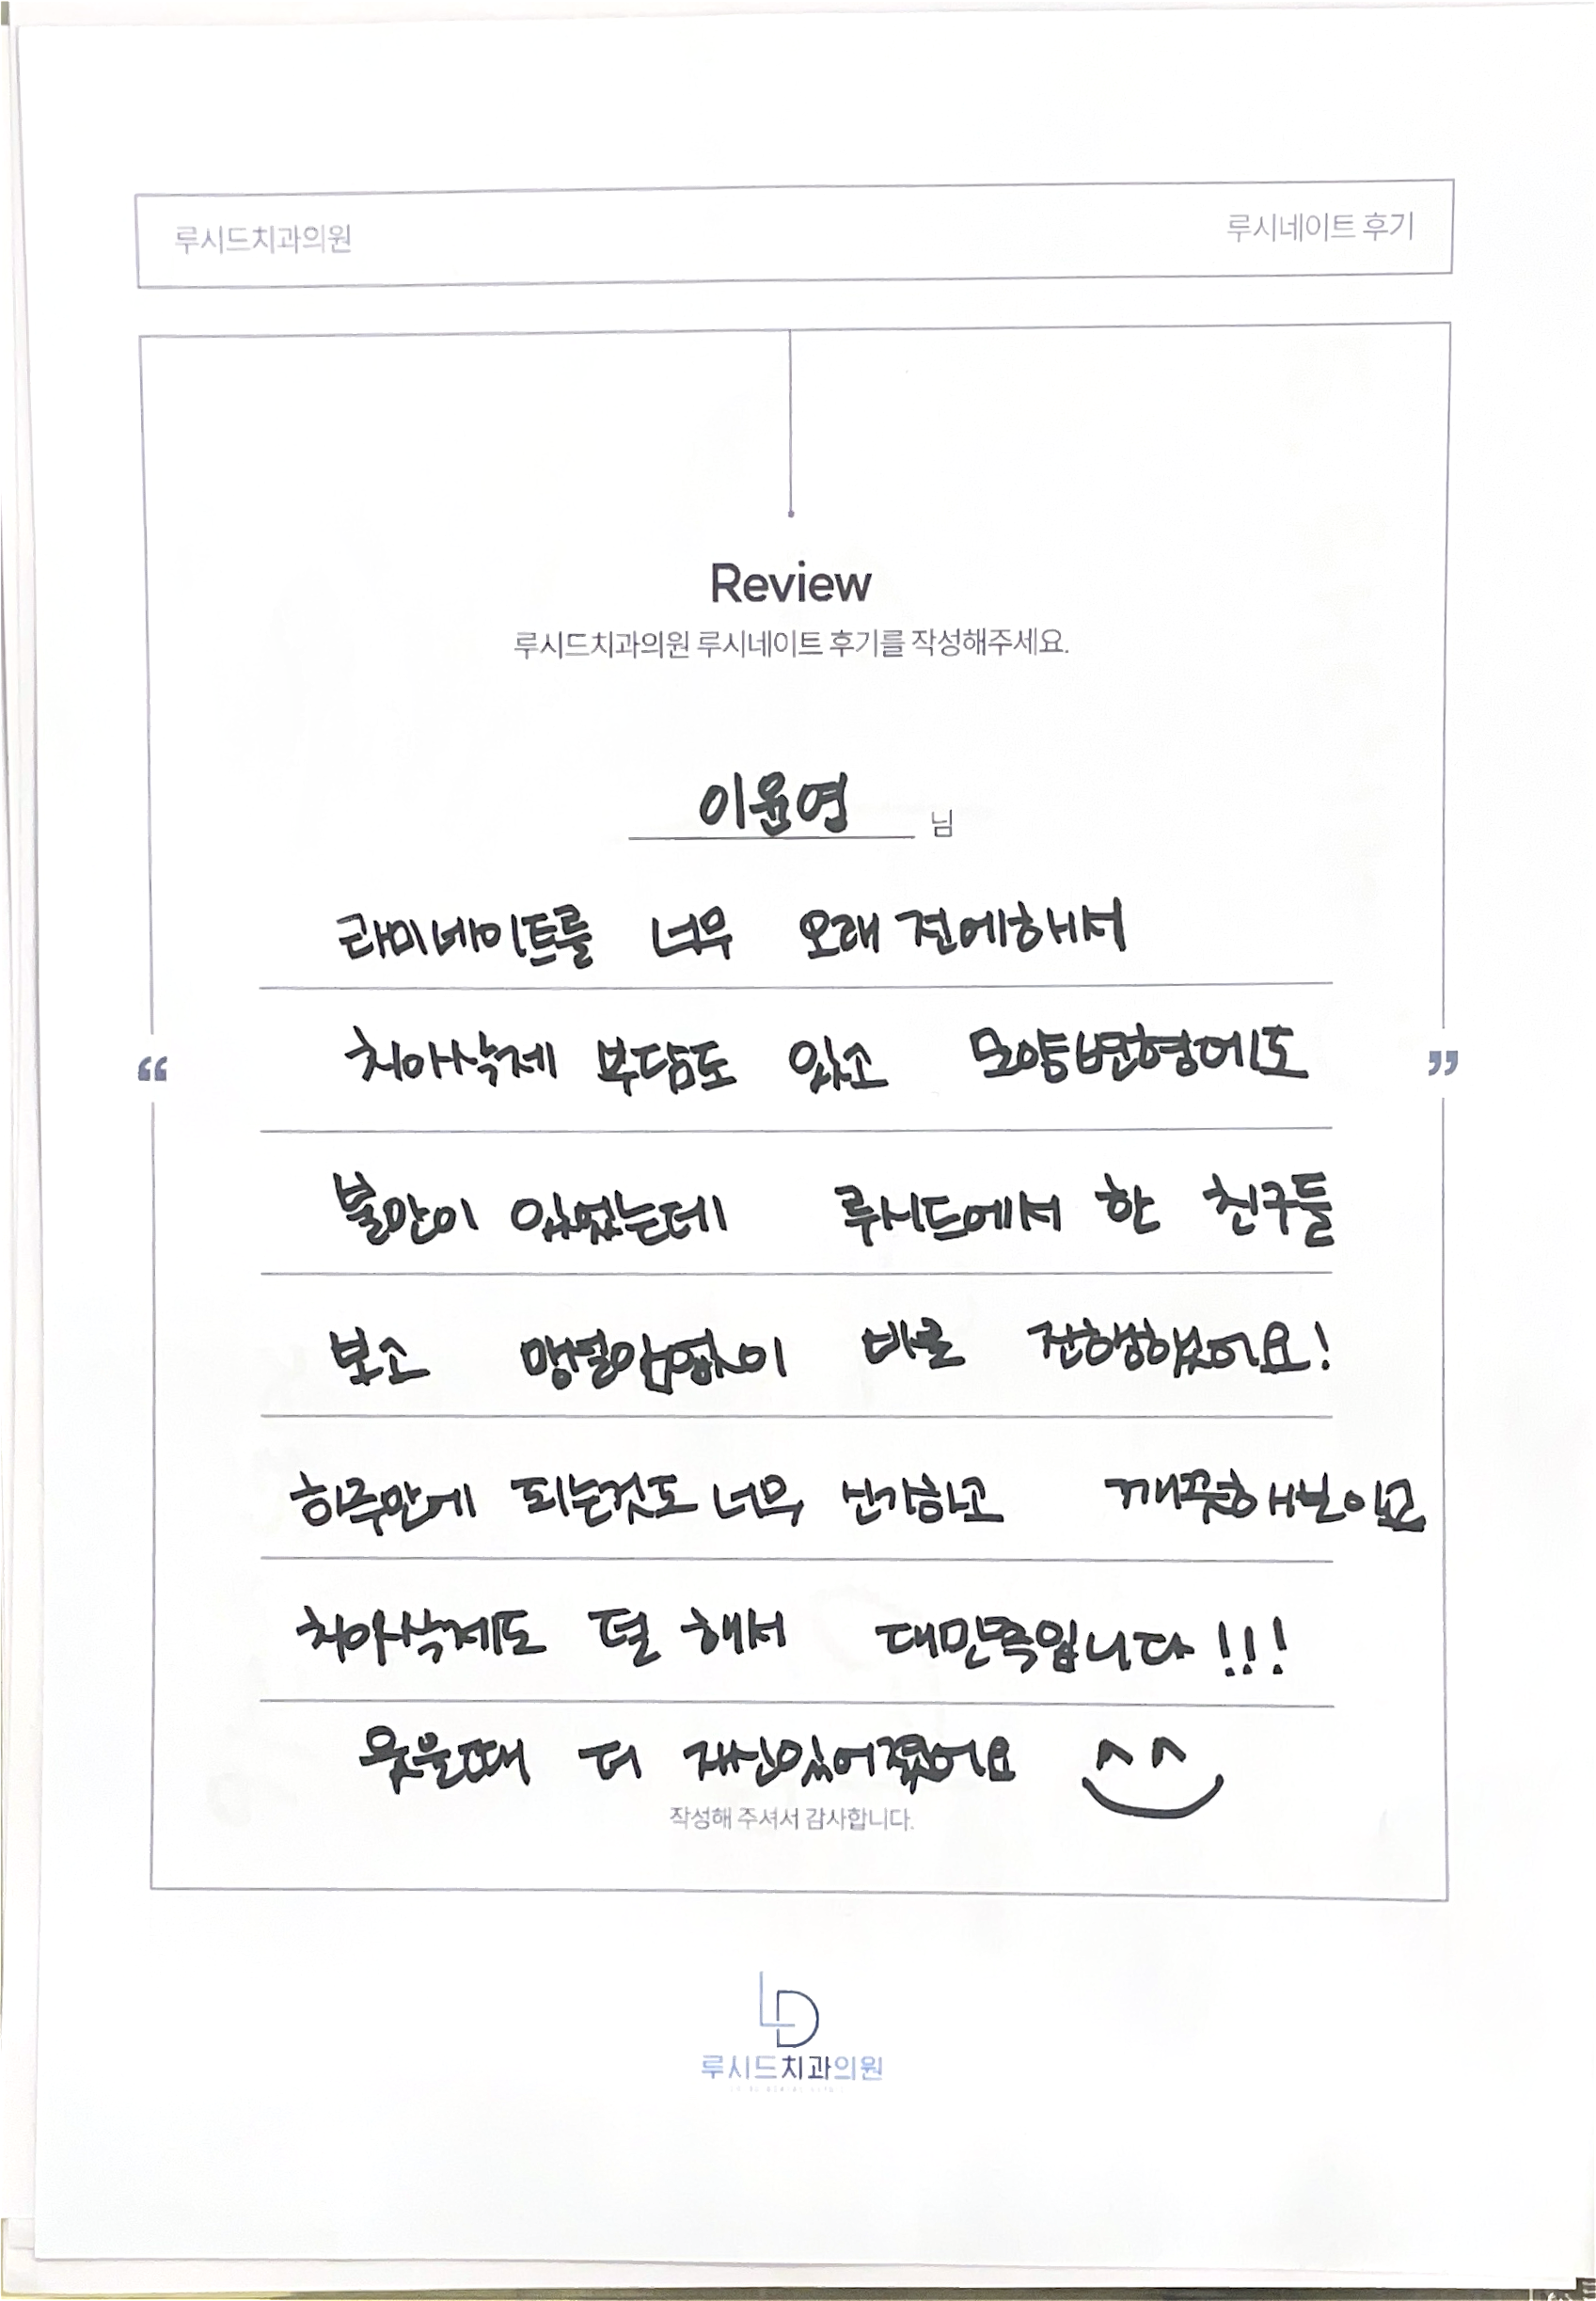 루시드치과의원
루시네이트 후기
Review
루시드치과의원 루시네이트 후기를 작성해주세요.
이윤영 님
라미네이트를 너무 오래 전에해서
“ 치아삭제 부담도 있고 모양변형에도 ”
불안이 있었는데 루시드에서 한 친구들
보고 망설임없이 바로 진행했어요!
하루만에 되는것도 너무 신기하고 깨끗해보이고
치아삭제도 덜 해서 대만족입니다!!!
웃을때 더 자신있어졌어요 ^^
작성해 주셔서 감사합니다.
LD
루시드치과의원